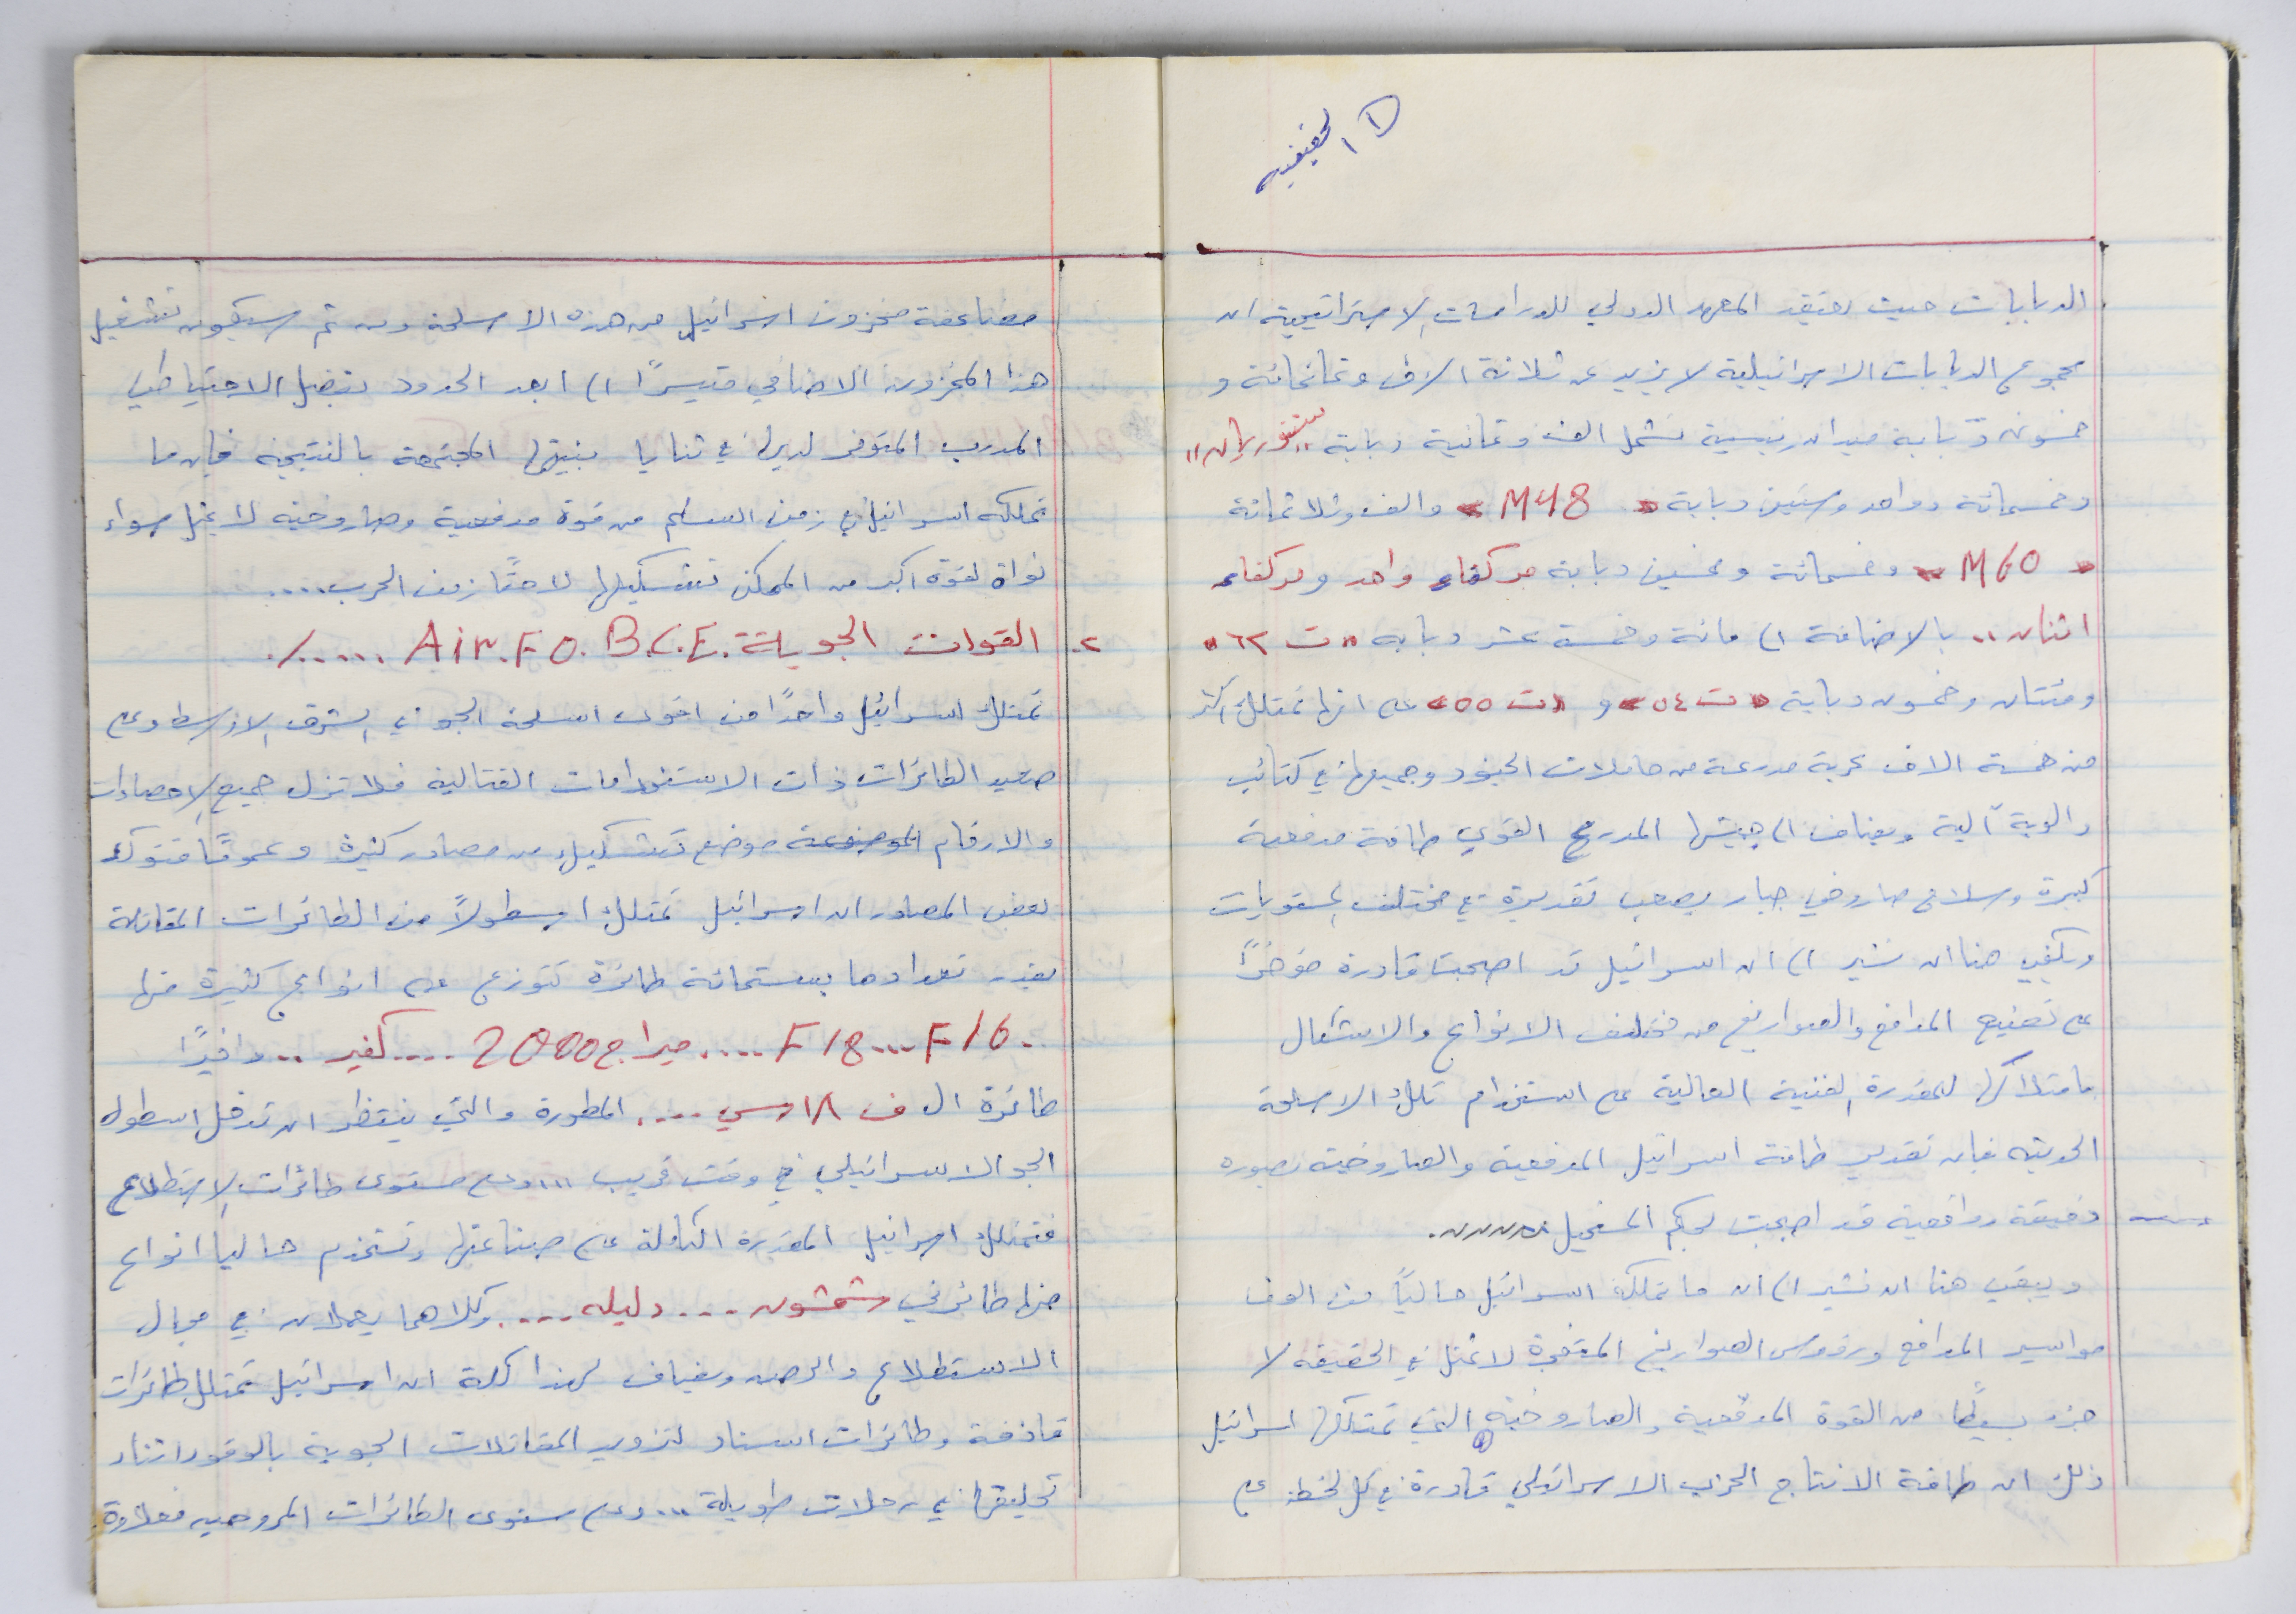 ① الحقيقيه
الدبابات حيث يعتقد المعهد الدولي للدراسات الاستراتيجية ان
مجموع الدبابات الاسرائيلية لا يزيد عن ثلاثة الاف وثمانمائة و
خمسون دبابة ميدان رئيسية تشمل الف وثمانية دبابة "سنتوريان"
وخمسمائة وواحد وستين دبابة « M48 » والف وثلاثمائة
« M60 » وخمسمائة وخمسين دبابة مركفاه واحد ومركفاه
اثنان .. بالاضافة الى مائة وخمسة عشر دبابه «ت ٦٢»
ومئتان وخمسون دبابة «ت ٥٤» و «ت ٥٥» على انها تمتلك اكثر
من خمسة الاف عربة مدرعة من حاملات الجنود وجميعها في كتائب
والوية آلية ويضاف الى جيشها المدرع القوي طاقة مدفعية
كبيرة وسلاح صاروخي جبار يصعب تقديرة في مختلف المستويات
ويكفي هنا ان نشير الى ان اسرائيل قد اصبحت قادرة مؤخرًا
على تصنيع المدافع والصواريخ من مختلف الانواع والاشكال
بامتلاكها للمقدرة الفنية العالية على استخدام تلك الاسلحة
الحديثه فان تقدير طاقة اسرائيل المدفعية والصاروخية بصوره
دقيقة وواقعية قد اصبحت بحكم المستحيل
ويبقى هنا ان نشير الى ان ما تملكه اسرائيل حاليًا من الوف
مواسير المدافع ورؤوس الصواريخ المتفجرة لا تمثل في الحقيقه الا
جزء بسيطًا من القوة المدفعية والصاروخية التي تمتلكها اسرائيل
ذلك ان طاقة الانتاج الحربي الاسرائيلي قادرة في كل لحظة على
مضاعفة مخزون اسرائيل من هذه الاسلحة ومن ثم سيكون تشغيل
هذا المخزون الاضافي متيسرًا الى ابعد الحدود بفضل الاحتياطي
المدرب المتوفر لديها في ثنايا بنيتها المجتمعة بالنتيجة فان ما
تملكه اسرائيل في زمن السلم من قوة مدفعية وصاروخية لا يمثل سواء
نواة لقوة اكبر من الممكن تشكيلها لاحقًا زمن الحرب....
٢. القوات الجوية Air.FO.B.C.E. .....
تمتلك اسرائيل واحدًا من اقوى اسلحة الجو في الشرق الاوسط وعلى
صعيد الطائرات ذات الاستخدامات القتالية فلا تزال جميع الاحصاءات
والارقام الموضوعة موضع تشكيك من مصادر كثيرة وعمومًا فتؤكد
بعض المصادر ان اسرائيل تمتلك اسطولًا من الطائرات المقاتلة
يقدر تعدادها بستمائة طائرة تتوزع على انواع كثيرة منها
F16...F18....ميراج 2000....كفير .. واخيرًا
طائرة ال ف ١٨ سي .... المطورة والتي ينتظر ان تدخل اسطول
الجو الاسرائيلي في وقت قريب ... وعلى مستوى طائرات الاستطلاع
فتمتلك اسرائيل المقدرة الكاملة على صناعتها وتستخدم حاليا انواع
منها طائرتي شمشون .... دليله .... وكلاهما يعملان في مجال
الاستطلاع والرصد ويضاف لهذا كله ان اسرائيل تمتلك طائرات
قاذفة وطائرات اسناد لتزويد المقاتلات الجوية بالوقود اثناء
تحليقها في رحلات طويلة ... وعلى مستوى الطائرات المروحيه فعلاوة